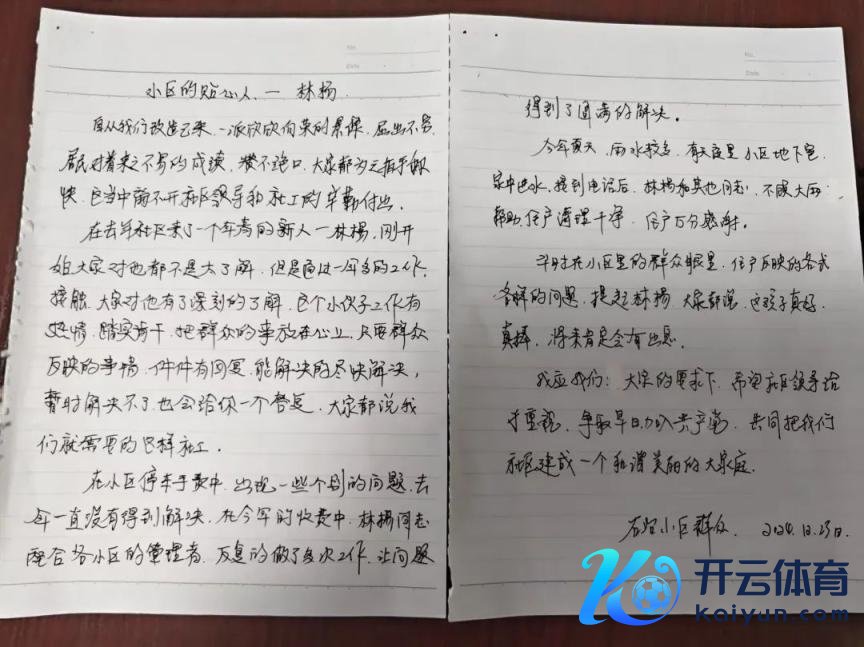 No.
Date
小区的贴心人、一 林杨.
自从我们改造已来、一派欣欣向荣的景象、
居民对着来之不易的成绩、赞不绝口、大家都为之拍手
快、这当中离不开社区领导和社工的辛勤付出.
在去年社区来了一个年青的新人一林杨、刚开
始大家对他都不是太了解、但是通过一年多的工作、
接触、大家对他有了深刻的了解、这个小伙子工作有
热情、踏实肯干、把群众的事放在心上、只要群众
反映的事情、件件有回复、能解决的尽快解决、
暂时解决不了、也会给你一个答复、大家都说我
们就需要的这样社工.
在小区停车手费中、出现一些个别的问题、去
年一直没有得到解决、在今年的收费中、林杨同志
配合各小区的管理者、反复的做了多次工作、让问题
No.
Date
得到了圆满的解决。
今年夏天、雨水较多、有天夜里小区地下室
家中进水、接到电话后、林杨和其他同志、不顾大雨
帮助住户清理干净、住户万分感谢。
平时在小区里的群众眼里、住户反映的各式
各解的问题、提起林杨、大家都说、这孩子真好、
真棒、将来肯定会有出息.
我应我们：大家的要求下、希望社区领导给
于重视、争取早日加入共产党、共同把我们
社区建成一个和谐美丽的大家庭.
小区群众、2024.12.23日.
开云体育
kaiyun.com